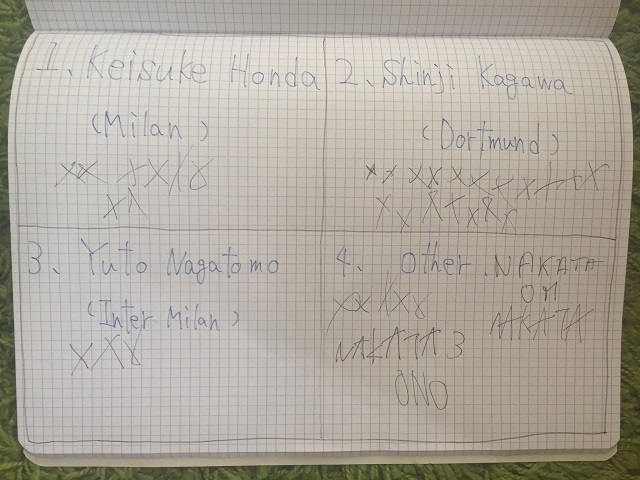 1. Keisuke Honda
(Milan)
xx xxxx
xx
2. Shinji Kagawa
(Dortmund)
3. Yuto Nagatomo
(Inter Milan)
xxx
4. Other
NAKATA
NAKATA
NAKATA 3
ONO